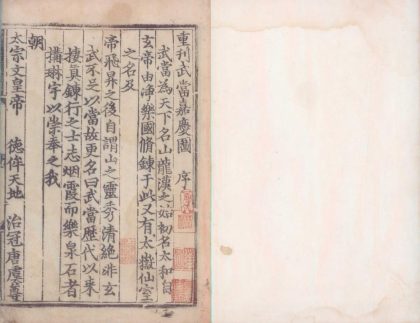 重刊武當嘉慶圖　序
武當為天下名山龍漢之始初名太和自
玄帝由淨樂國脩鍊于此又有太嶽仙室
之名及
帝飛昇之後自謂山之靈秀清絕非玄
武不足以當故更名曰武當歷代以來
棲真鍊行之士志烟霞而樂泉石者
構琳宇以崇奉之我
朝
太宗文皇帝　德侔天地　治冠唐虞尊